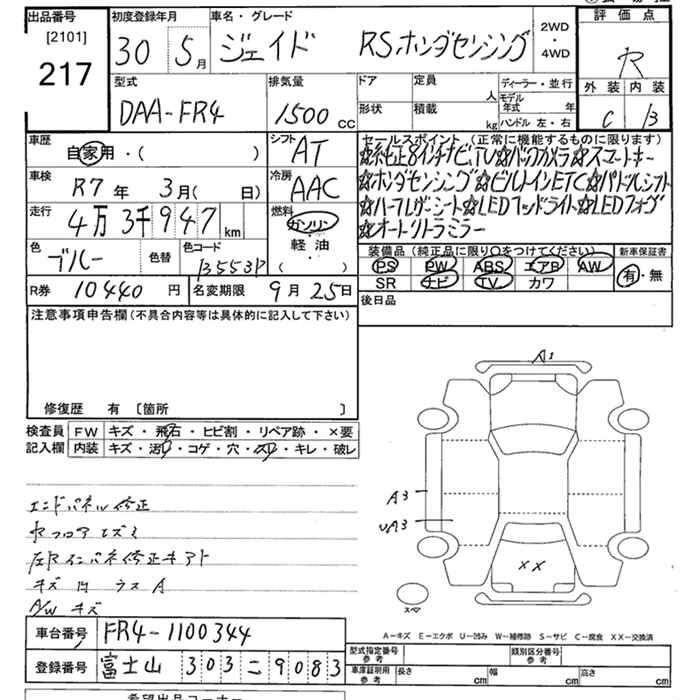 出品番号
[2101]
217
初度登録年月
30 5月
車名・グレード
ジェイド RSホンダセンシング
2WD
・
4WD
評価点
R
外装 内装
C B
型式
DAA-FR4
排気量
1500 CC
ドア
定員
人
形状
積載
kg
ディーラー・並行
モデル年式 年
ハンドル 左・右
車歴
自家用・( )
シフト
AT
車検
R7年 3月( 日)
冷房
AAC
走行
4万3千947 km
燃料
ガソリン
軽油
( )
色
ブルー
色替
色コード
B553P
セールスポイント (正常に機能するものに限ります)
☆純正8インチナビ,TV☆バックカメラ☆スマートキー
☆ホンダセンシング☆ビルトインETC☆パドルシフト
☆ハーフレザーシート☆LEDヘッドライト☆LEDフォグ
☆オートリトラミラー
装備品 (純正品に限り〇をつけてください)
PS PW ABS エアB AW
SR ナビ TV カワ
新車保証書
有・無
R券 10440円
名変期限 9月25日
後日品
注意事項申告欄 (不具合内容等は具体的に記入して下さい)
修復歴 有 〔箇所 〕
検査員
記入欄
FW キズ・飛石・ヒビ割・リペア跡・×要
内装 キズ・汚れ・コゲ・穴・スレ・キレ・破レ
エンドパネル修正
左Rインパネ修正キアト
キズ 凹 ウスA
A/W キズ
A1
A3
UA3
XX
スペア
A-キズ E-エクボ U-凹み W-補修跡 S-サビ C-腐食 XX-交換済
車台番号 FR4-1100344
登録番号 富士山 303 ニ 9083
型式指定番号
参考
類別区分番号
参考
車庫証明用
参考
長さ cm 幅 cm 高さ cm
希望出品コーナー